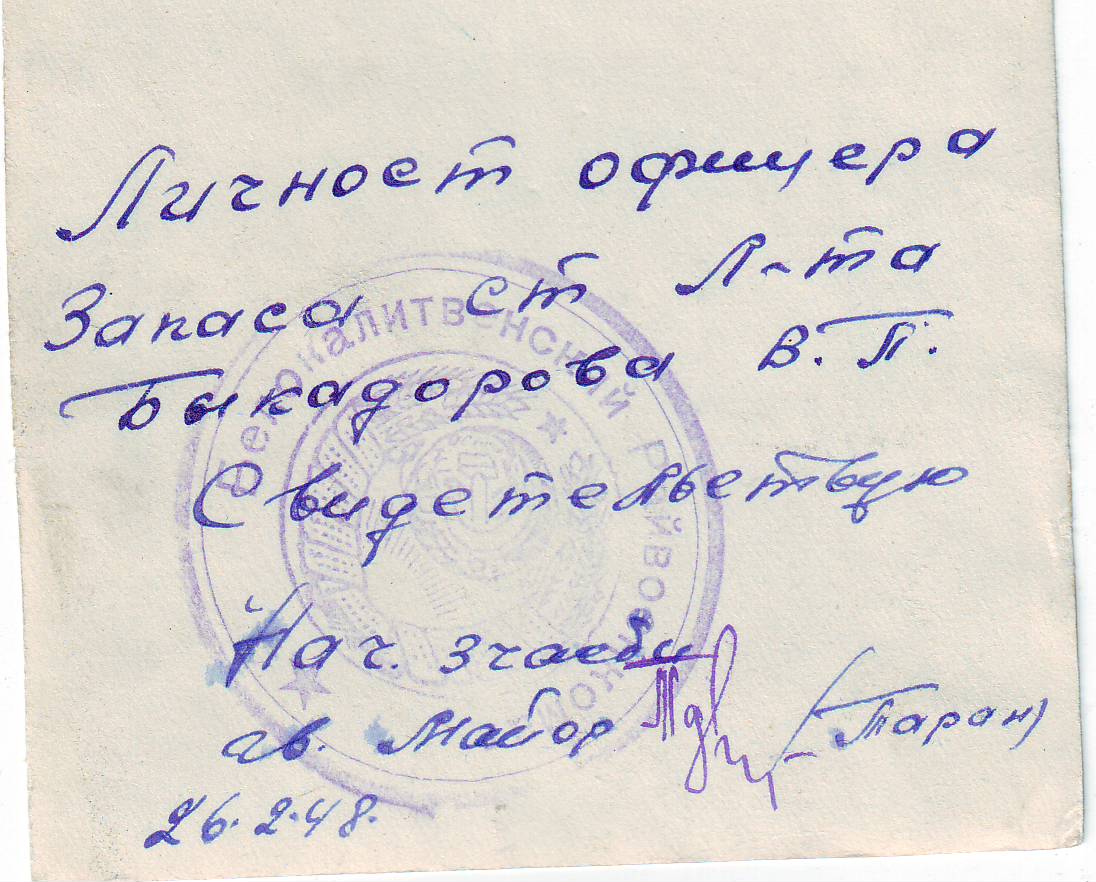 Личност офицера
Запаса ст Л-та
Быкадорова В. П.
Свидетельствую
Нач. 3 части
гв. Майор (Таран)
26.2.48.
Белокалитвенский Райвоенком